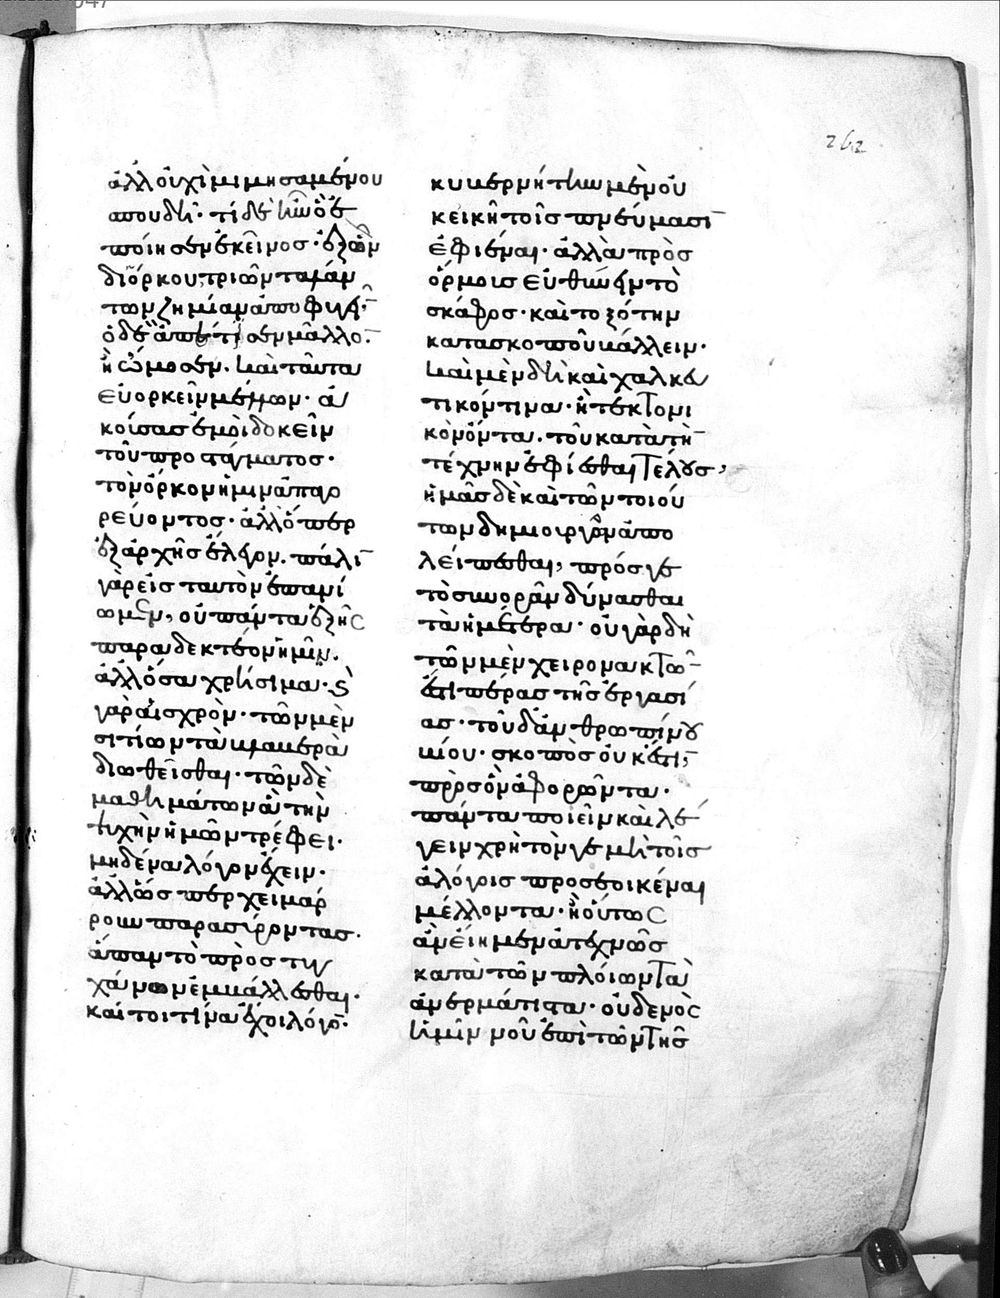 262
ἀλλ οὐχὶ μιμησαμένου
σπουδὴ· τί δὲ ἦν ὃ ἐ
ποίησεν ἐκεῖνος· ἐξὸν
δι ὅρκου, τριῶν ταλάν
των ζημίαν ἀποφυγεῖν
ὁ δὲ ἀπέτισεν μᾶλλον
ἢ ὤμοσεν. καὶ ταῦτα
εὐορκεῖν μέλλων· ἀ
κούσας ἐμοὶ δοκεῖν
τοῦ προστάγματος·
τὸν ὅρκον ἡμῖν ἀπαγο
ρεύοντος· ἀλλ ὅπερ
ἐξαρχῆς ἔλεγον. πάλιν
γὰρ εἰς ταυτὸν ἐπανί
ωμεν, οὐ πάντα ἑξῆς
παραδεκτέον ἡμῖν.
ἀλλ ὅσα χρήσιμα· καὶ
γὰρ αἰσχρὸν· τῶν μὲν
σιτίων τὰ βλαβερὰ
διωθεῖσθαι· τῶν δὲ
μαθημάτων ἃ τὴν
ψυχὴν ἡμῶν τρέφει·
μηδένα λόγον ἔχειν·
ἀλλ ὥσπερ χειμάρ
ρουν παρασύροντας.
ἅπαν τὸ προστυ
χάνων ἐμβάλλεσθαι·
καίτοι τίνα ἔχει λόγον·
κυβερνήτην μὲν οὐ
κ εἰκῆ τοῖς πνεύμασιν
ἐφιέναι· ἀλλὰ πρὸς
ὅρμους εὐθύνειν τὸ
σκάφος· καὶ τοξότην
κατὰ σκοποῦ βάλλειν·
καὶ μὲν δὴ καὶ χαλκευ
τικόν τινα· ἢ τεκτονι
κὸν ὄντα. τοῦ κατὰ τὴν
τέχνην ἐφίεσθαι τέλους,
ἡμᾶς δὲ καὶ τῶν τοιού
των δημιουργῶν ἀπο
λείπεσθαι, πρός γε
τὸ συνορᾶν δύνασθαι
τὰ ἡμέτερα· οὐ γὰρ δὴ
τῶν μὲν χειρονακτῶν
ἐστι πέρας τῆς ἐργασί
ας· τοῦ δ ἀνθρωπίνου
βίου· σκοπὸς οὐκ ἔστι,
πρὸς ὃν ἀφορῶντα·
πάντα ποιεῖν καὶ λέ
γειν χρὴ τόν γε μὴ τοῖς
ἀλόγοις προσεοικέναι
μέλλοντα· ἢ οὕτως
ἂν εἴημεν ἀτεχνῶς
κατὰ τῶν πλοίων τὰ
ἀνερμάτιστα· οὐδενὸς
ἡμῖν νοῦ ἐπὶ τῶν τῆς